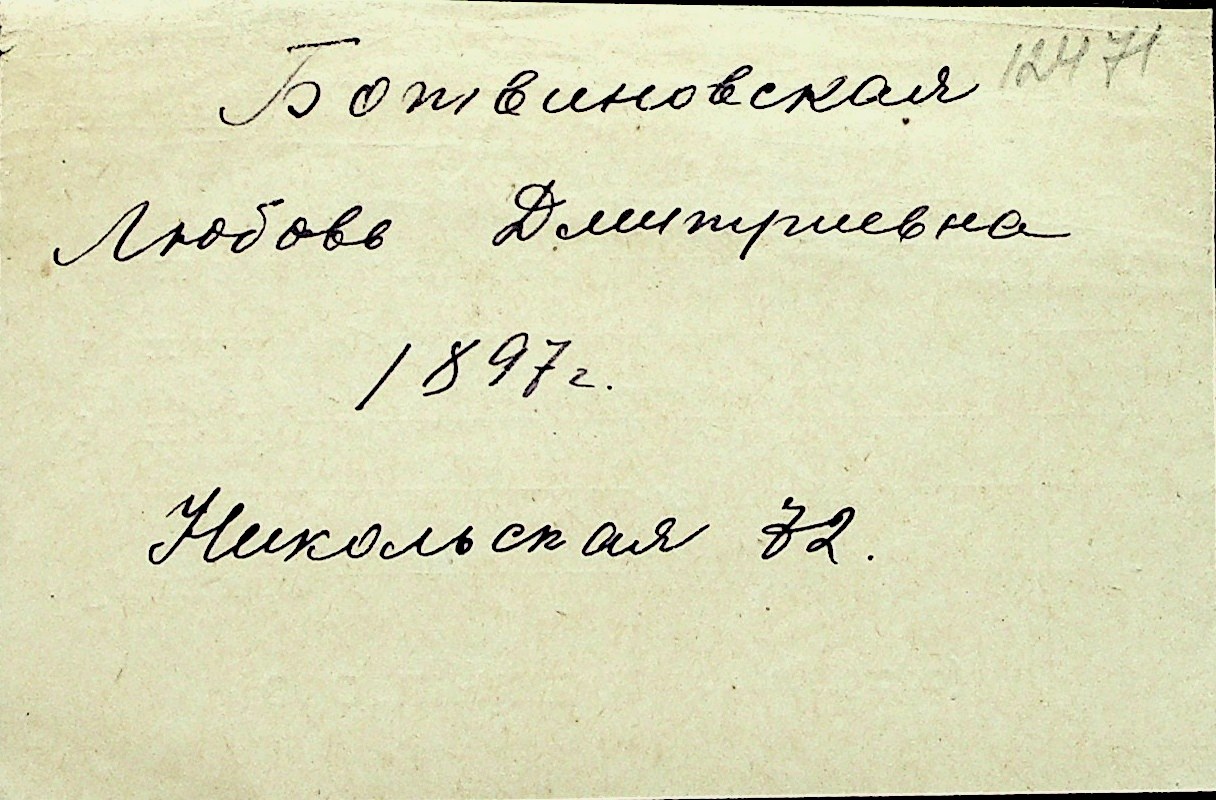 Ботвиновская 12471
Любовь Дмитриевна
1897г.
Никольская 72.